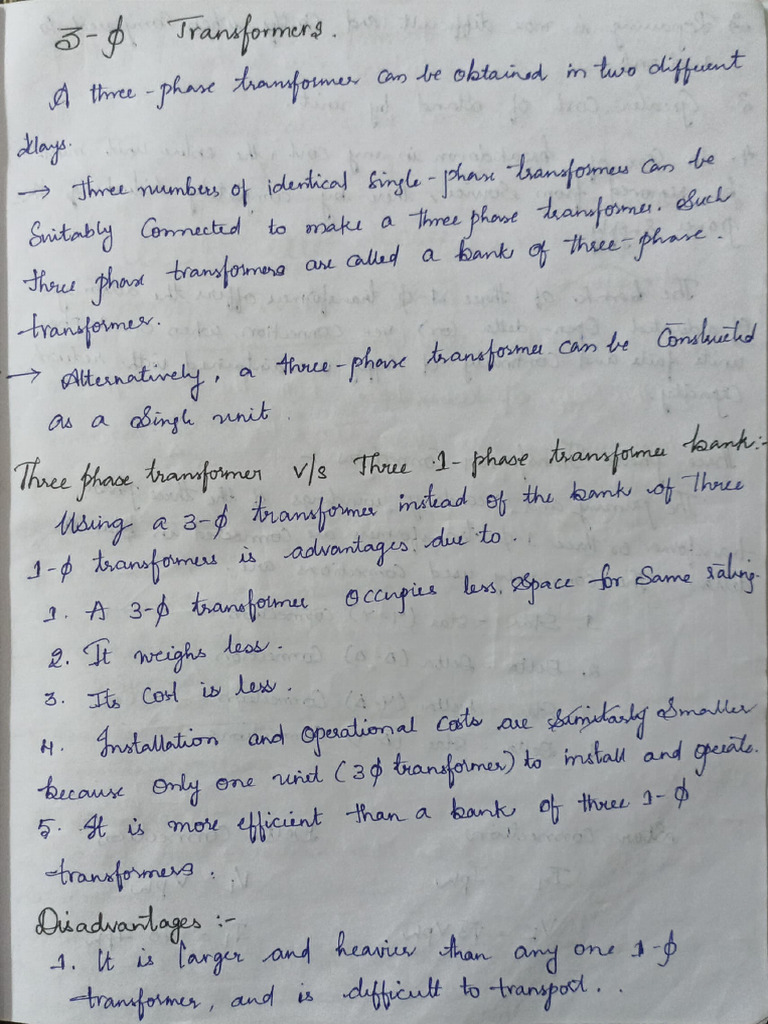 3-ϕ Transformers.
A three-phase transformer can be obtained in two different
ways.
→ Three numbers of identical Single-phase transformers can be
Suitably Connected to make a three phase transformer. Such
three phase transformers are called a bank of three-phase.
transformer.
→ Alternatively, a three-phase transformer can be Constructed
as a Single unit.
Three phase transformer v/s Three 1-phase transformer bank:-
Using a 3-ϕ transformer instead of the bank of Three
1-ϕ transformers is advantages due to.
1. A 3-ϕ transformer occupies less space for Same rating.
2. It weighs less.
3. Its Cost is less.
4. Installation and operational Costs are Smaller
because only one unit (3ϕ transformer) to install and operate.
5. It is more efficient than a bank of three 1-ϕ
transformers.
Disadvantages :-
1. It is larger and heavier than any one 1-ϕ
transformer, and is difficult to transport..